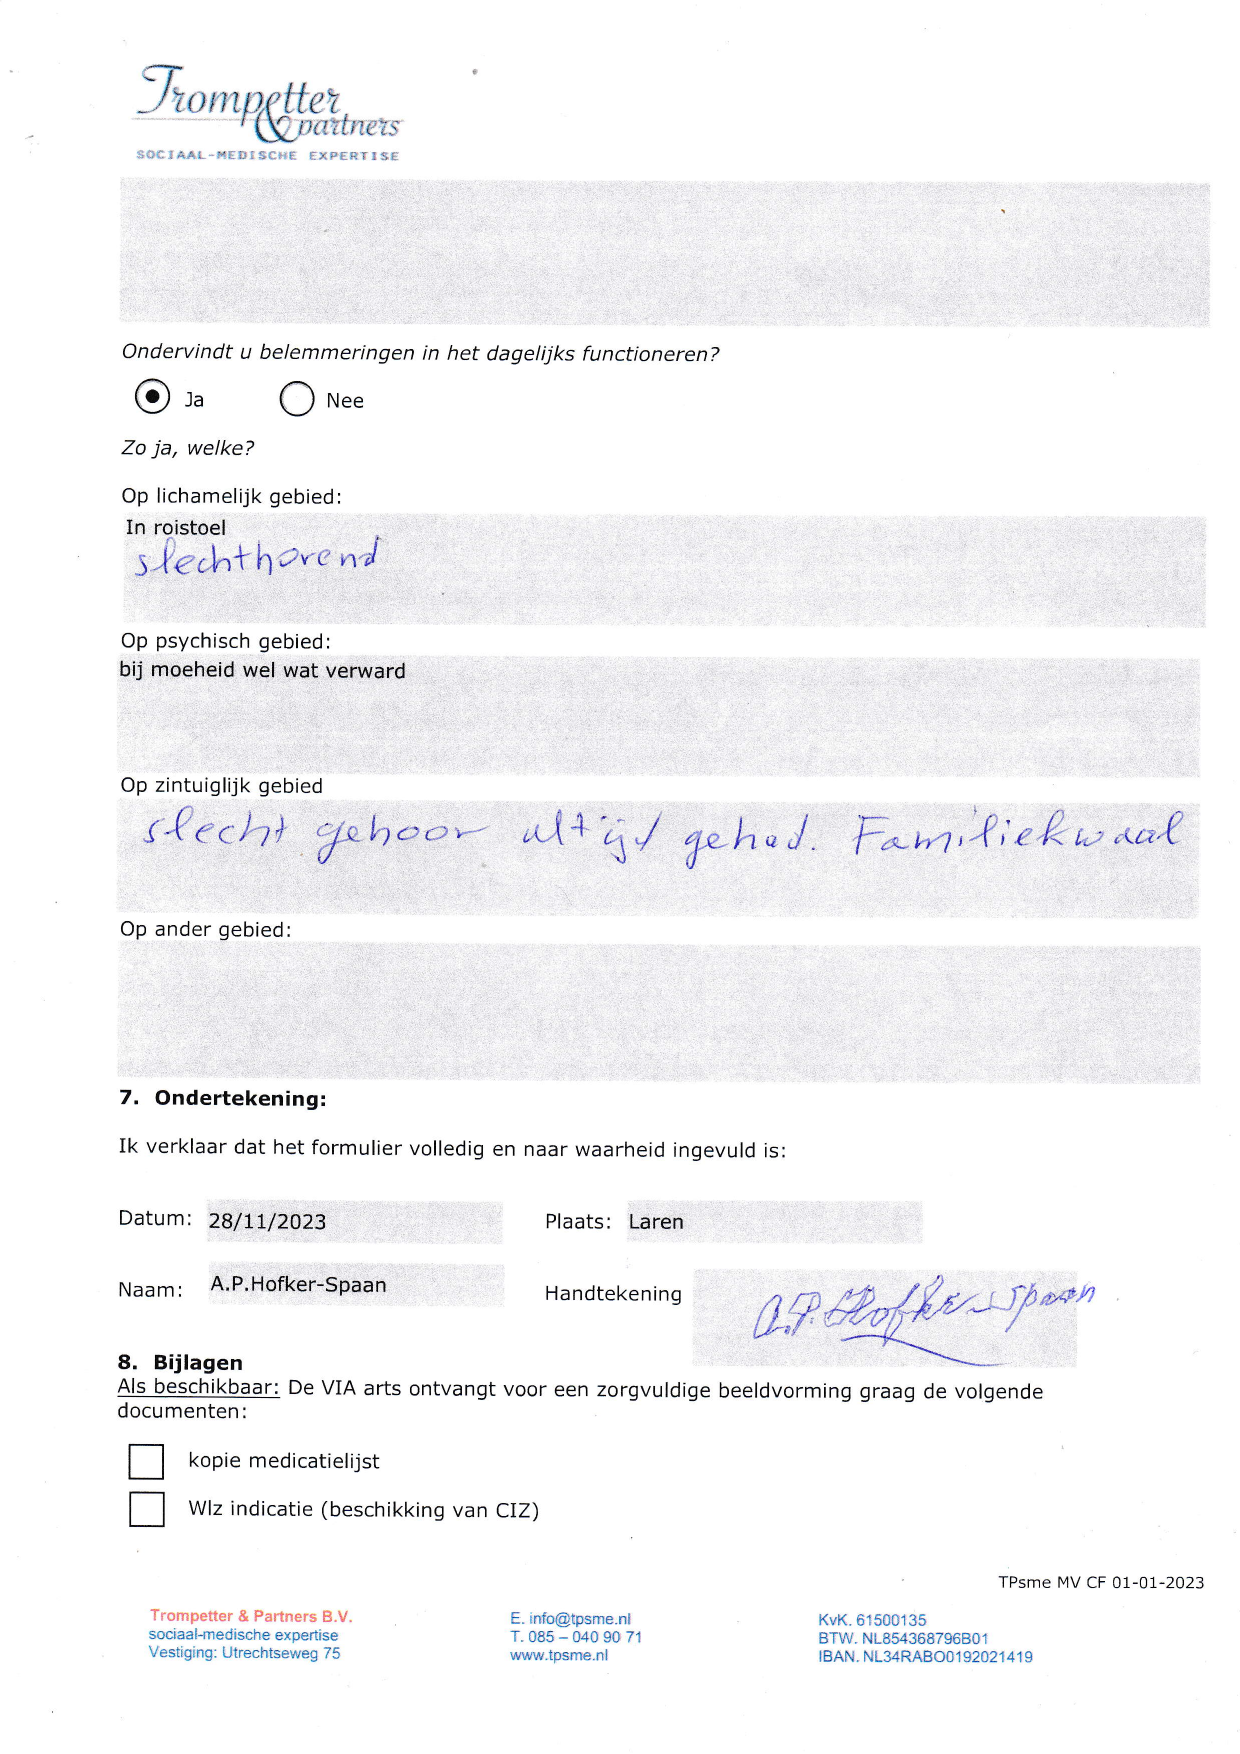 Trompetter
& partners
SOCIAAL-MEDISCHE EXPERTISE
Ondervindt u belemmeringen in het dagelijks functioneren?
Ja Nee
Zo ja, welke?
Op lichamelijk gebied:
In roistoel
slechthorend
Op psychisch gebied:
bij moeheid wel wat verward
Op zintuiglijk gebied
slecht gehoor altijd gehad. Familiekwaal
Op ander gebied:
7. Ondertekening:
Ik verklaar dat het formulier volledig en naar waarheid ingevuld is:
Datum: 28/11/2023 Plaats: Laren
Naam: A.P.Hofker-Spaan Handtekening A.P. Hofker-Spaan
8. Bijlagen
Als beschikbaar: De VIA arts ontvangt voor een zorgvuldige beeldvorming graag de volgende
documenten:
kopie medicatielijst
Wlz indicatie (beschikking van CIZ)
TPsme MV CF 01-01-2023
Trompetter & Partners B.V. E. info@tpsme.nl KvK. 61500135
sociaal-medische expertise T. 085 – 040 90 71 BTW. NL854368796B01
Vestiging: Utrechtseweg 75 www.tpsme.nl IBAN. NL34RABO0192021419